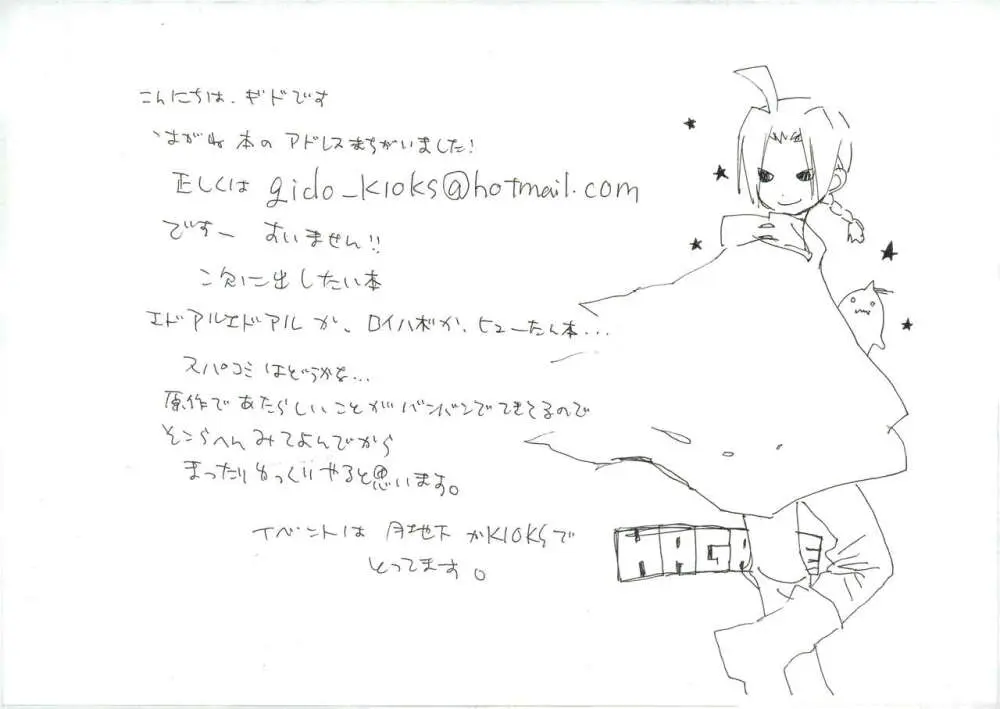 こんにちは、ギドです
はがね本のアドレスまちがいました!
正しくは gido_kioks@hotmail.com
ですー すいません!!
次に出したい本
エドアルエドアルか、ロイハボか、ヒューたん本...
スパコミはどうかな...
原作であたらしいことがバンバンでてきてるので
そこらへんみてよんでから
まったりゆっくりやると思います。
イベントは 月地下かKIOKSで
とってます。